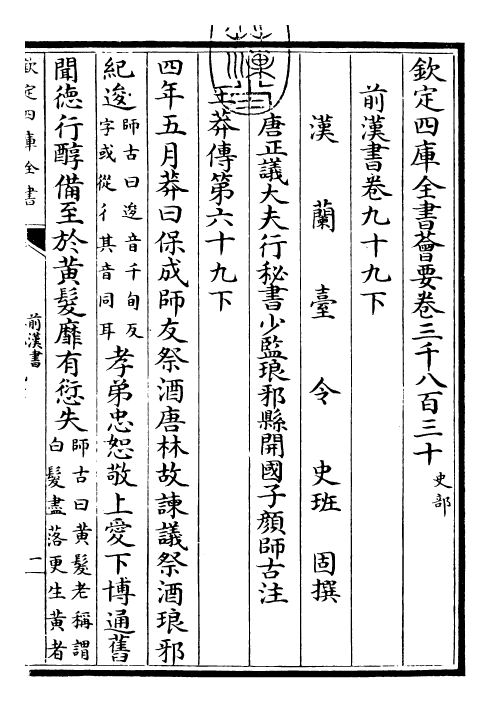 欽定四庫全書薈要卷三千八百三十史部
前漢書卷九十九下
漢蘭臺令史班固撰
唐正議大夫行秘書少監琅邪縣開國子顏師古注
王莽傳第六十九下
四年五月莽曰保成師友祭酒唐林故諫議祭酒琅邪
紀逡師古曰逡音千旬反字或從彳其音同耳孝弟忠恕敬上愛下博通舊
聞德行醇備至於黃髮靡有愆失師古曰黃髮老稱謂白髮盡落更生黃者
欽定四庫全書
前漢書
一